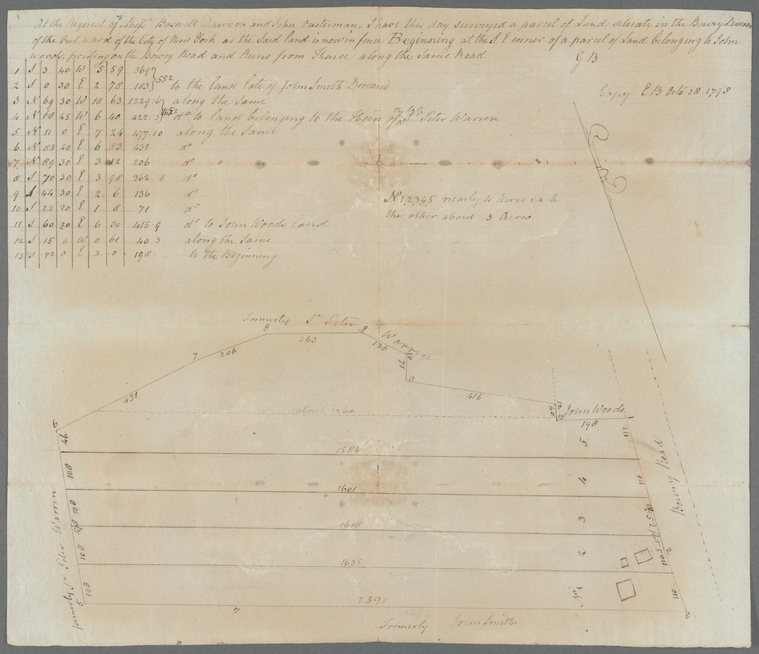 At the Request of Messrs Roswell Dawson and John Oosterman, I have this day surveyed a parcel of Land situate in the Bowry Division
of the Out ward of the City of New York as the Said land is now in fence Beginning at the S E corner of a parcel of Land belonging to John
woods fronting on the Bowry Road and Runs from thence along the Same Road
G B
1 S 3 40 W 5 59 369
2 S 0 30 E 2 78 183 552 to the land late of John Smith Deceased
3 N 69 30 W 18 63 1229 along the same
4 N 68 45 W 6 40 422 do to land belonging to the Heirs of Sr Peter Warren
5 N 11 0 E 7 24 477 10 along the Same
6 N 53 40 E 6 53 431 do
7 N 89 30 E 3 12 206 do
8 S 70 30 E 3 98 262 do
9 S 44 30 E 2 6 136 do
10 S 22 20 E 1 8 71 do
11 S 60 20 E 6 30 415 9 do to John Woods land
12 S 15 0 W 0 61 40 3 along the Same
13 S 72 0 E 3 0 198 to the Beginning
Copy E B Octo 28 1798
No 1 2 3 4 5 nearly 4 Acres each
the other about 3 Acres
formerly Sr Peter Warren
8
263
9
136
7
206
10
71
11
431
416
about 1260
40
12
13
John Woods
198
46
112
5
1584
108
4
1601
108
3
1618
108
2
1635
108
No 1
110
5
4
Formerly John Smiths
formerly Sr Peter Warren
Bowry Road